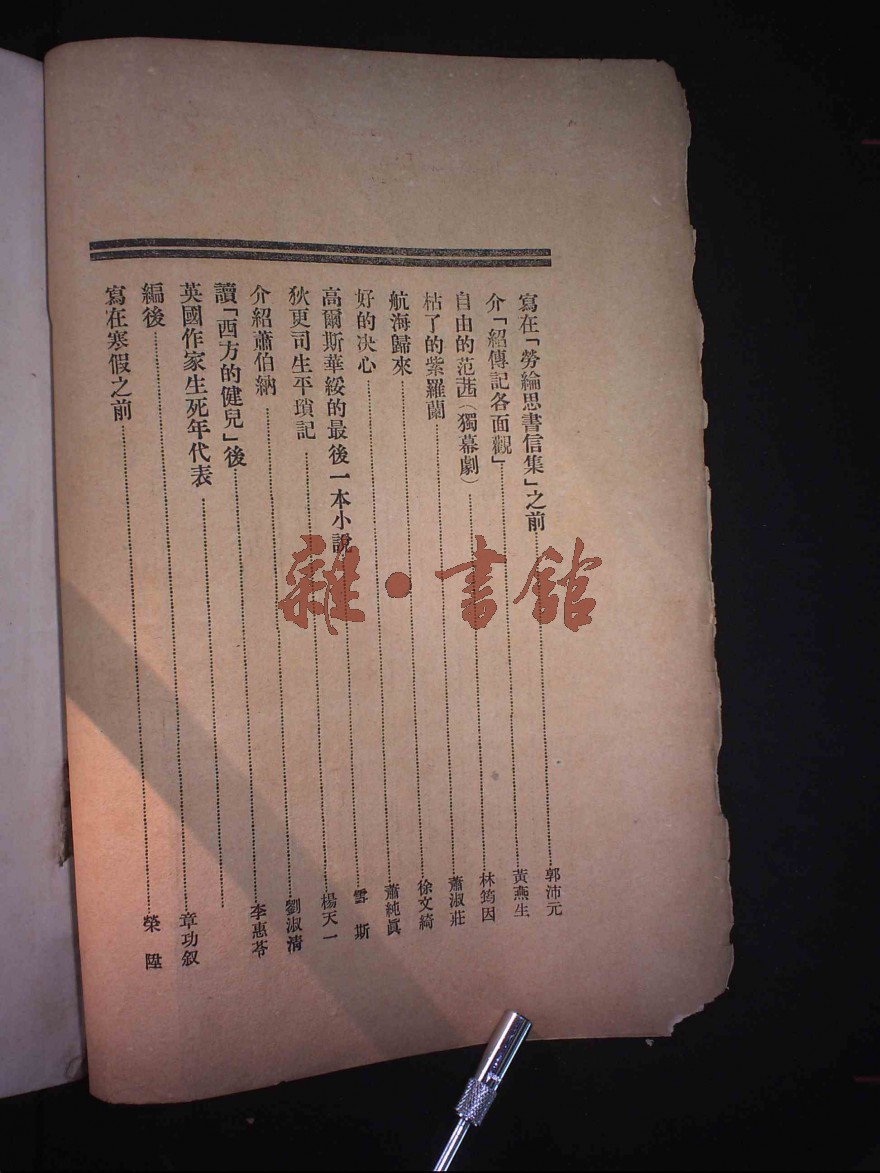 寫在「勞綸思書信集」之前……郭沛元
介「紹傳記各面觀」……黃燕生
自由的范茜(獨幕劇)……林筠因
枯了的紫羅蘭……蕭淑莊
航海歸來……徐文綺
好的决心……蕭純眞
高爾斯華綏的最後一本小說……雪斯
狄更司生平瑣記……楊天一
介紹蕭伯納……劉淑清
讀「西方的健兒」後……李惠苓
英國作家生死年代表……
編後……章功叙
寫在寒假之前……榮陞
雜·書館